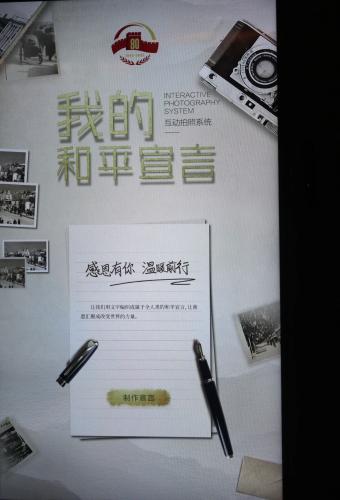 80
我的
INTERACTIVE
PHOTOGRAPHY
SYSTEM
互动拍照系统
和平宣言
感恩有你 温暖前行
让我们用文字编织成属于全人类的和平宣言,让善
意汇聚成改变世界的力量。
制作宣言